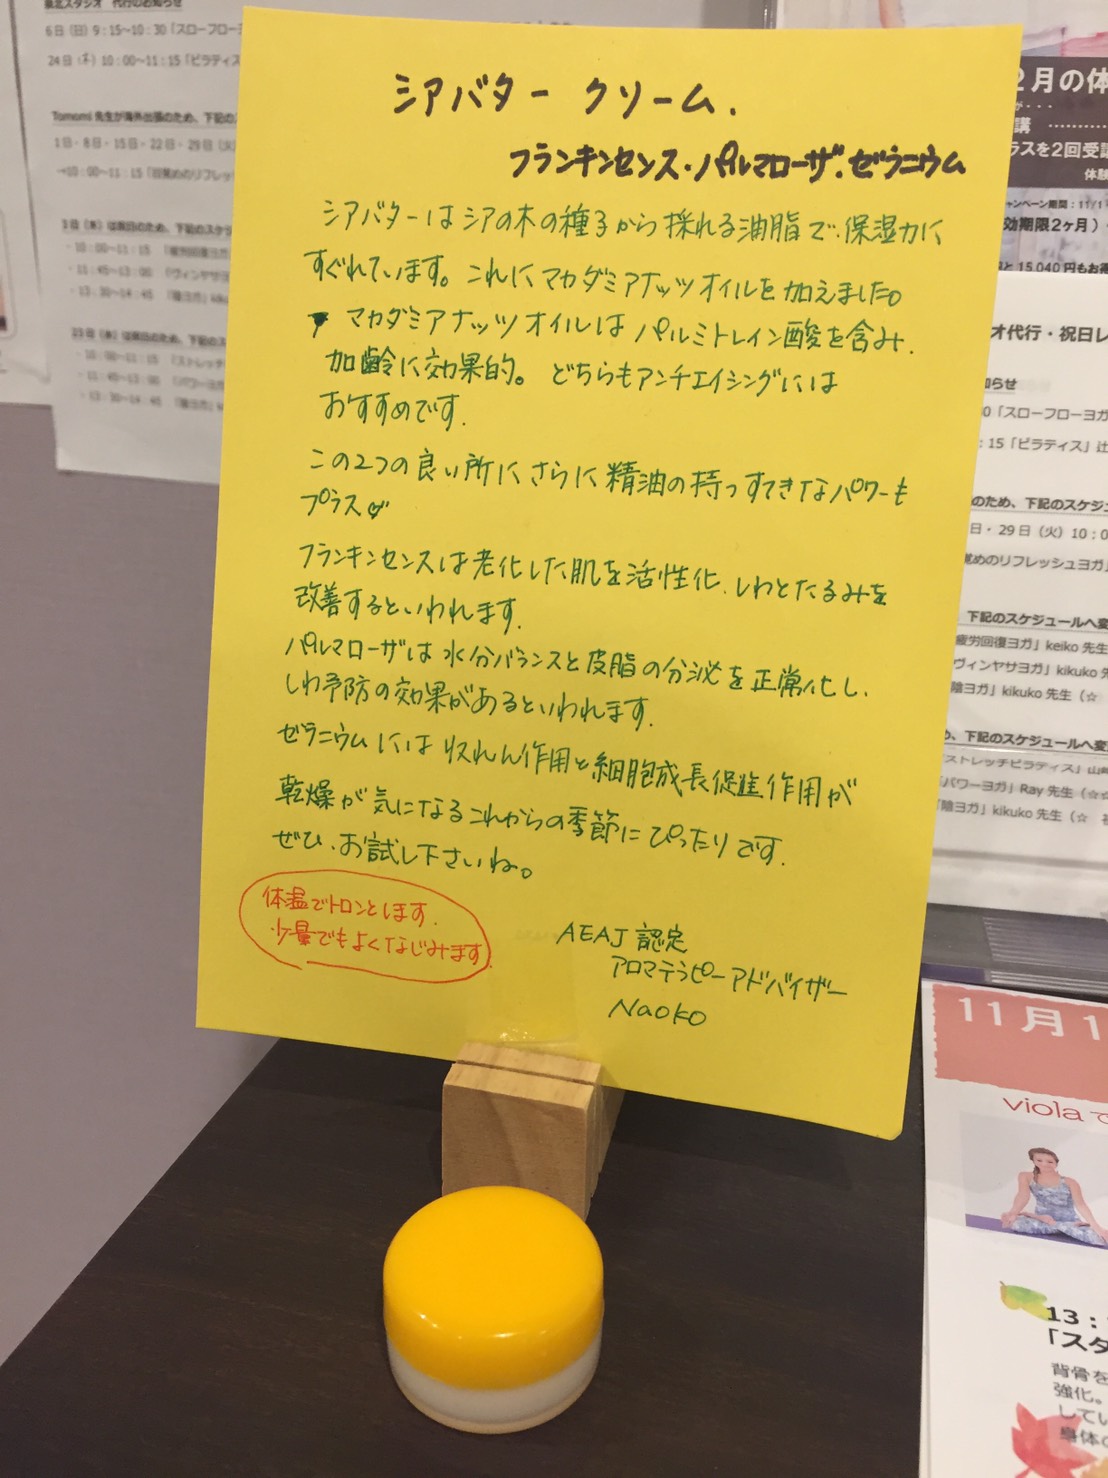 シアバター クリーム.
フランキンセンス・パルマローザ・ゼラニウム
シアバターはシアの木の種子から採れる油脂で、保湿力に
すぐれています。これにマカダミアナッツオイルを加えました。
マカダミアナッツオイルはパルミトレイン酸を含み、
加齢に効果的。どちらもアンチエイシングには
おすすめです.
この2つの良い所にさらに精油の持つすてきなパワーも
プラス♡
フランキンセンスは老化した肌を活性化、しわとたるみを
改善するといわれます.
パルマローザは水分バランスと皮脂の分泌を正常化し、
しわ予防の効果があるといわれます.
ゼラニウムには収れん作用と細胞成長促進作用が
乾燥が気になるこれからの季節にぴったりです.
ぜひ、お試し下さいね。
体温でトロンとします.
少量でもよくなじみます
AEAJ 認定
アロマテラピーアドバイザー
Naoko
代行のお知らせ
6日（日）9：15～10：30「スローフロー
24日（木）10：00～11：15「ピラティス
Tomomi 先生が海外出張のため、下記の
1日・8日・15日・22日・29日（火
→10：00～11：15「目覚めのリフレッ
・10：00～11：15 「疲労回復ヨガ
・11：45～13：00 「ヴィンヤサヨガ
・13：30～14：45 「陰ヨガ」kiku
・10：00～11：15 「ストレッチ
・11：45～13：00 「パワーヨガ
・13：30～14：45 「陰ヨガ」
2月の体
講
ラスを2回受講
体験
ャンペーン期間：11/1
効期限2ヶ月）
15,040円もお得
オ代行・祝日レ
知らせ
0「スローフローヨガ
：15「ピラティス」辻
のため、下記のスケジュ
日・29日（火）10：0
覚めのリフレッシュヨガ」
下記のスケジュールへ変
疲労回復ヨガ」keiko 先生
ヴィンヤサヨガ」kikuko 先
陰ヨガ」kikuko 先生（☆
め、下記のスケジュールへ変
ストレッチピラティス」山
パワーヨガ」Ray 先生（☆
「陰ヨガ」kikuko 先生（☆
11月1
violaで
13：
「スタ
背骨を
強化。
してい
身体の